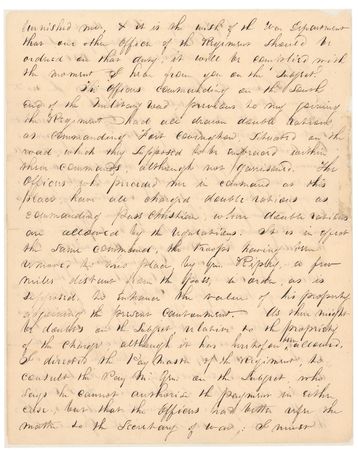 furnished me, & it is the wish of the War Department
that one other officer of the Regiment should be
ordered on that duty; it will be complied with
the moment I hear from you on the subject.
The Officers commanding on the South
end of the Military road previous to my joining
the Regiment, had all drawn double rations
as commanding Fort Covington, situated on the
road, which they supposed to be embraced within
their command, although not garrisoned. The
Officers who preceded me in command at this
place have all charged double rations as
commanding Pass Christian, where double rations
are allowed by the regulations. It is in effect
the same command, the troops having been
removed to this place by Gen. Ripley, a few
miles distant from the Pass, in order, as is
supposed, to enhance the value of his property
adjoining the present Cantonment. As there might
be doubts on the subject, relative to the propriety
of the charge, although it has heretofore been allowed,
I directed the Pay Master of the Regiment, to
consult the Pay Mr. Genl. on the subject, who
says he cannot authorise the payment in either
case, but that the officers had better refer the
matter to the Secretary of War; I never